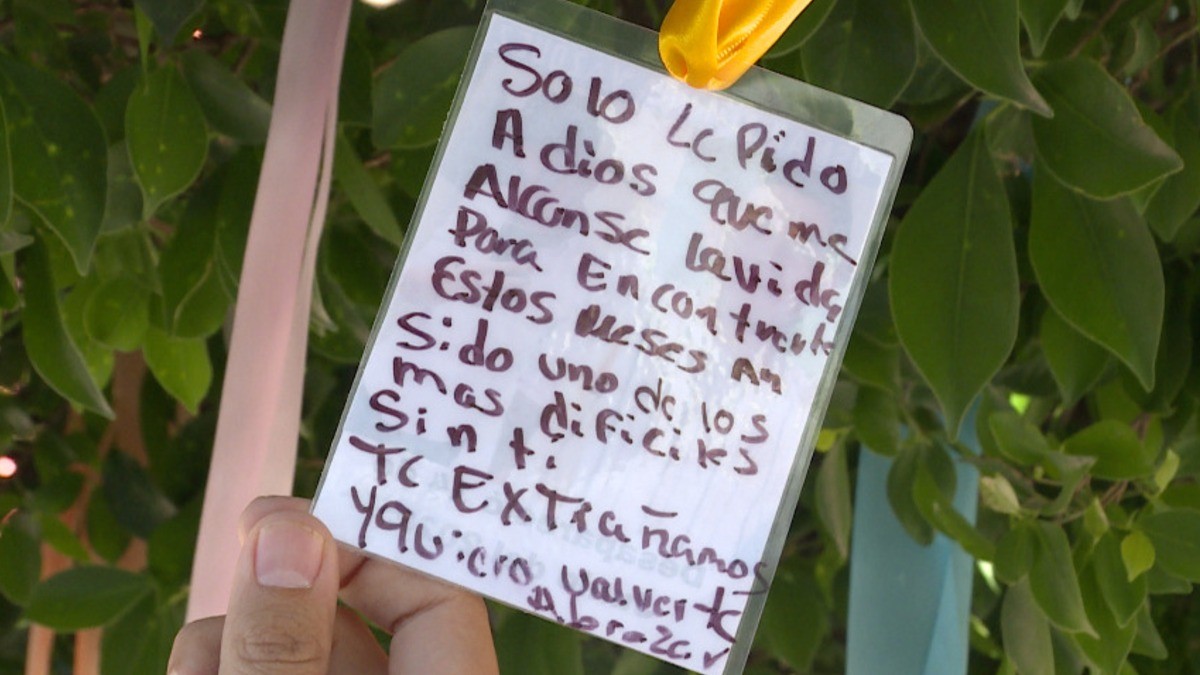 Solo Le Pido
A dios que me
Alcanse la vida
Para Encontrarte
Estos meses an
Sido uno de los
mas dificiles
Sin ti
TE EXTrañamos
Y quiero valverte
Abrazar